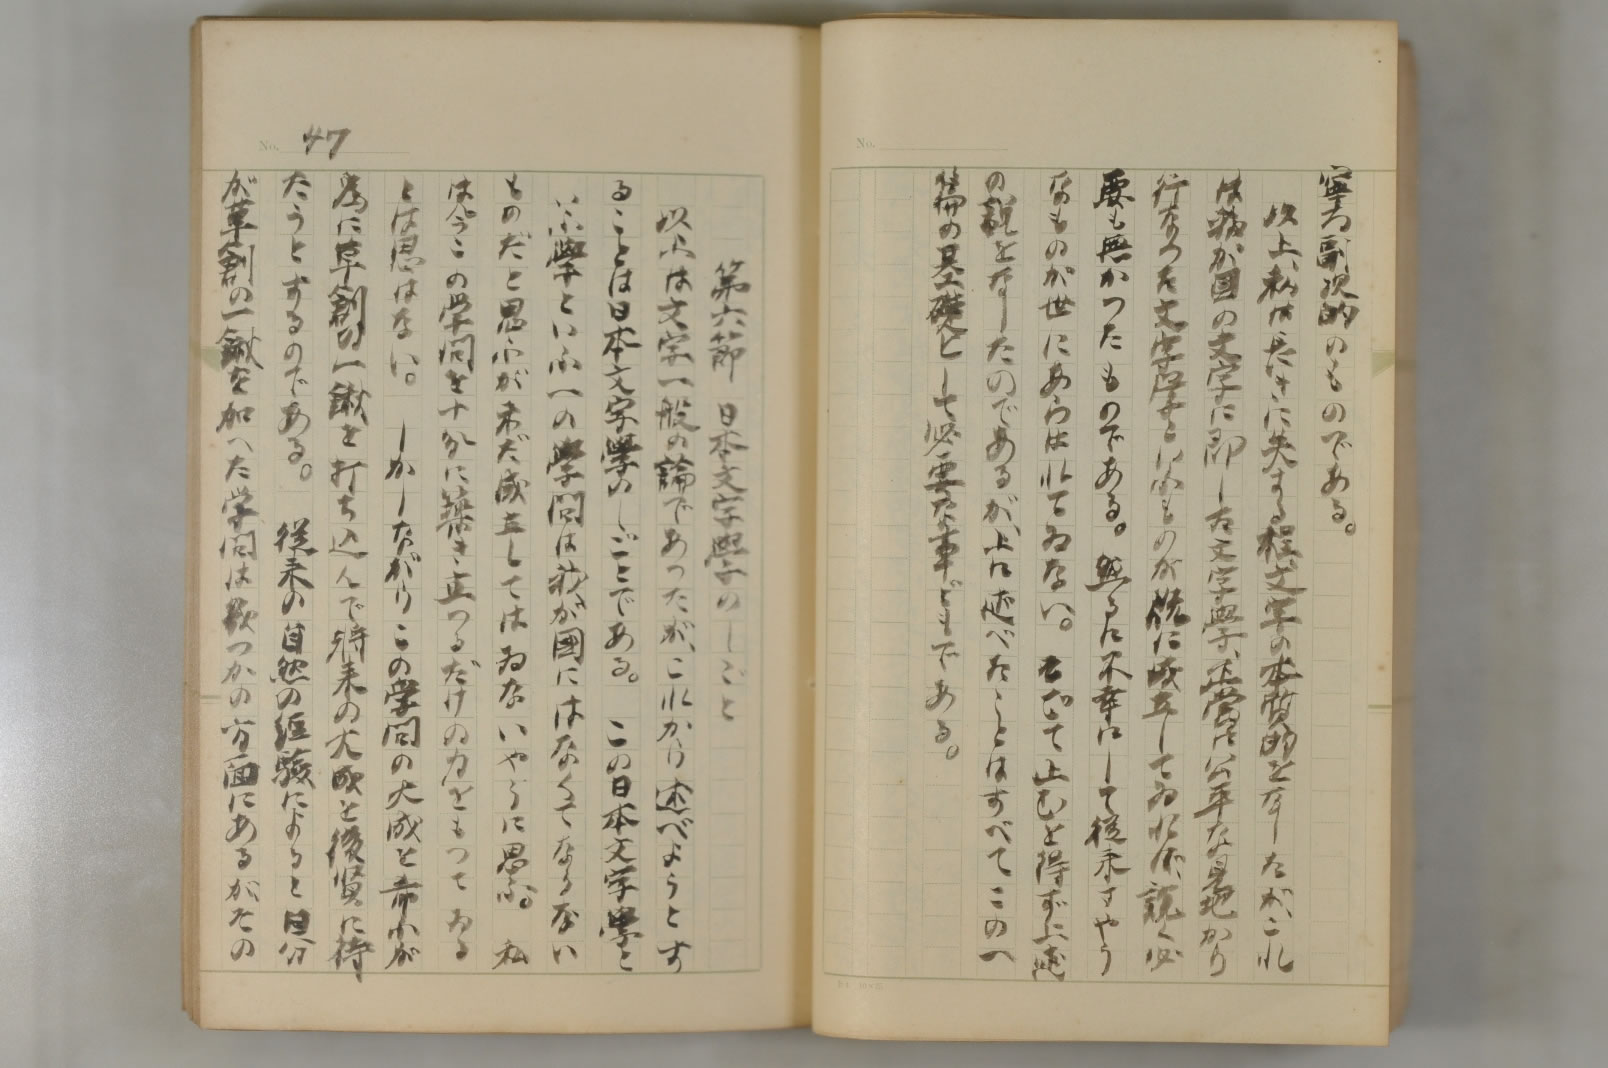 寧ろ副次的のものである。
以上、私は長きに失する程、文字の本質的をなしたが、これ
は我が國の文字に即した文字學、正當に公平な見地から
行なつた文字學といふものが既に成立してゐれば、説く必
要も無かつたものである。然るに不幸にして從来さやう
なものが世にあらはれてゐない。もだして止むを得ず上述
の説をなしたのであるが、上に述べたことはすべてこの一
篇の基礎として必要な事どもである。
No. 47
第六節 日本文字學のしごと
以上は文字一般の論であつたが、これから述べようとす
ることは日本文字學のしごとである。この日本文字學と
いふ學といふ一の學問は我が國にはなくてならない
ものだと思ふが未だ成立してはゐないやうに思ふ。私
は今この学問を十分に築き立つるだけの力をもつてゐる
とは思はない。しかしながらこの学問の大成を希ふが
為に草創の一鍬を打ち込んで將来の大成を後賢に待
たうとするのである。從来の自然の経験によると自分
が草創の一鍬を加へた学問は数つかの方面にあるがその
No.